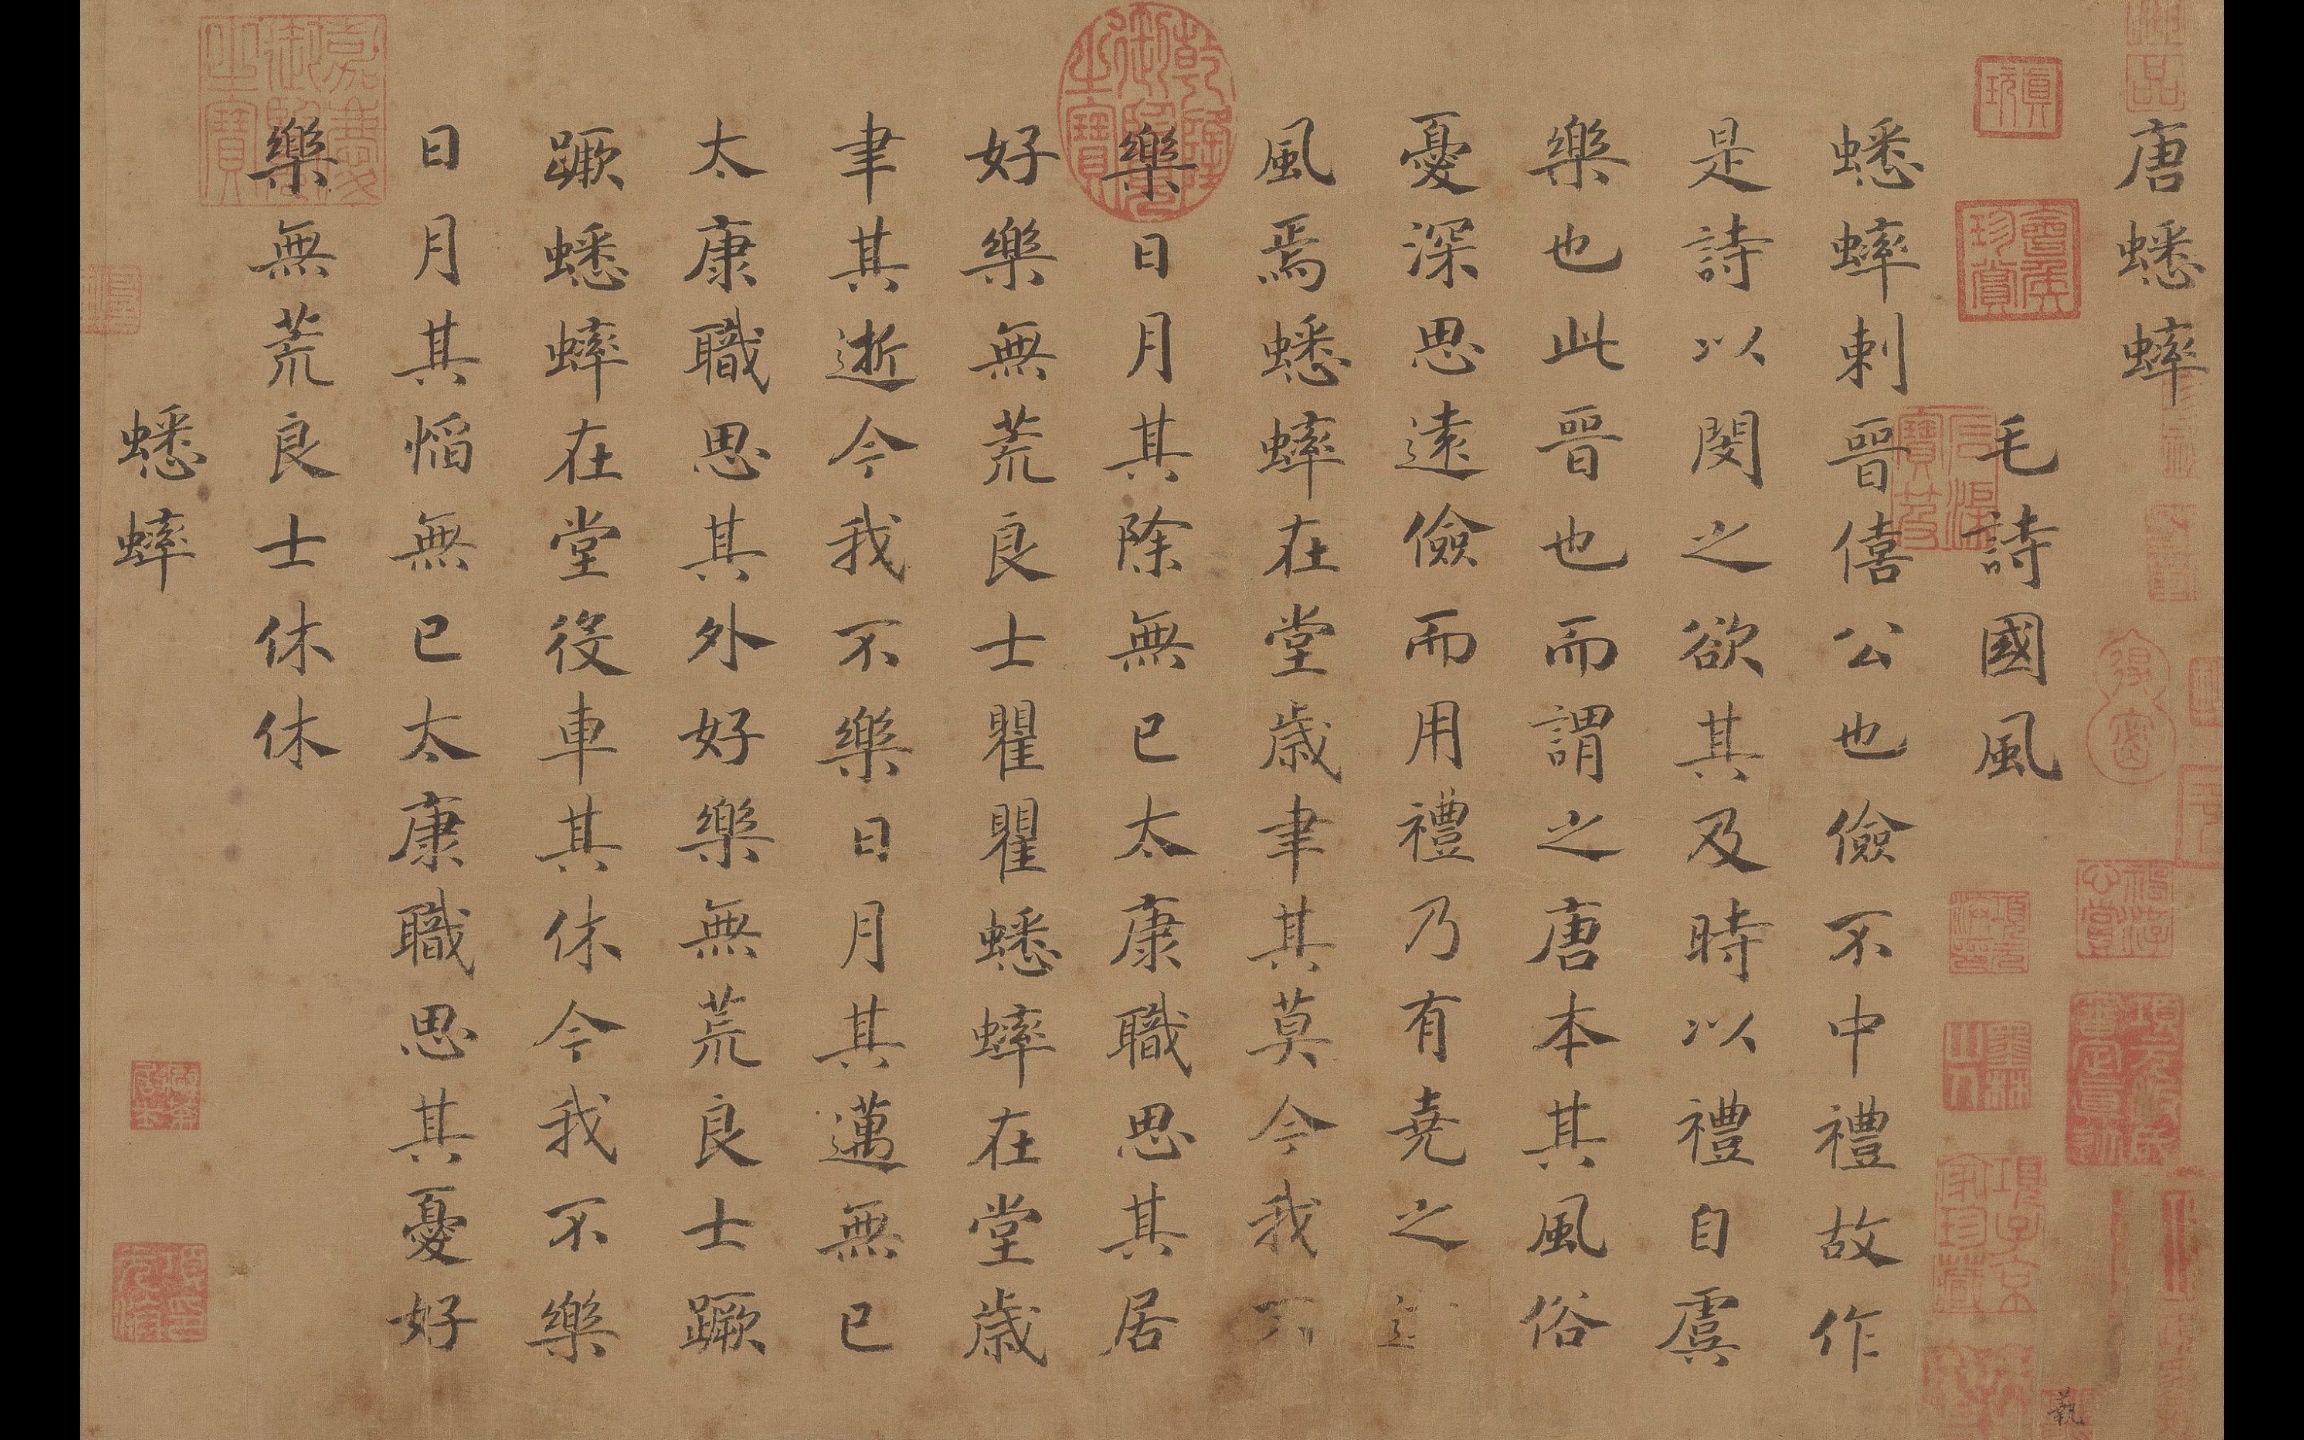 唐蟋蟀
毛詩國風
蟋蟀刺晉僖公也儉不中禮故作
是詩以閔之欲其及時以禮自虞
樂也此晉也而謂之唐本其風俗
憂深思遠儉而用禮乃有堯之
風焉蟋蟀在堂歲聿其莫今我不
樂日月其除無已太康職思其居
好樂無荒良士瞿瞿蟋蟀在堂歲
聿其逝今我不樂日月其邁無已
太康職思其外好樂無荒良士蹶
蹶蟋蟀在堂役車其休今我不樂
日月其慆無已太康職思其憂好
樂無荒良士休休
蟋蟀
乾隆御覽之寶
嘉慶御覽之寶